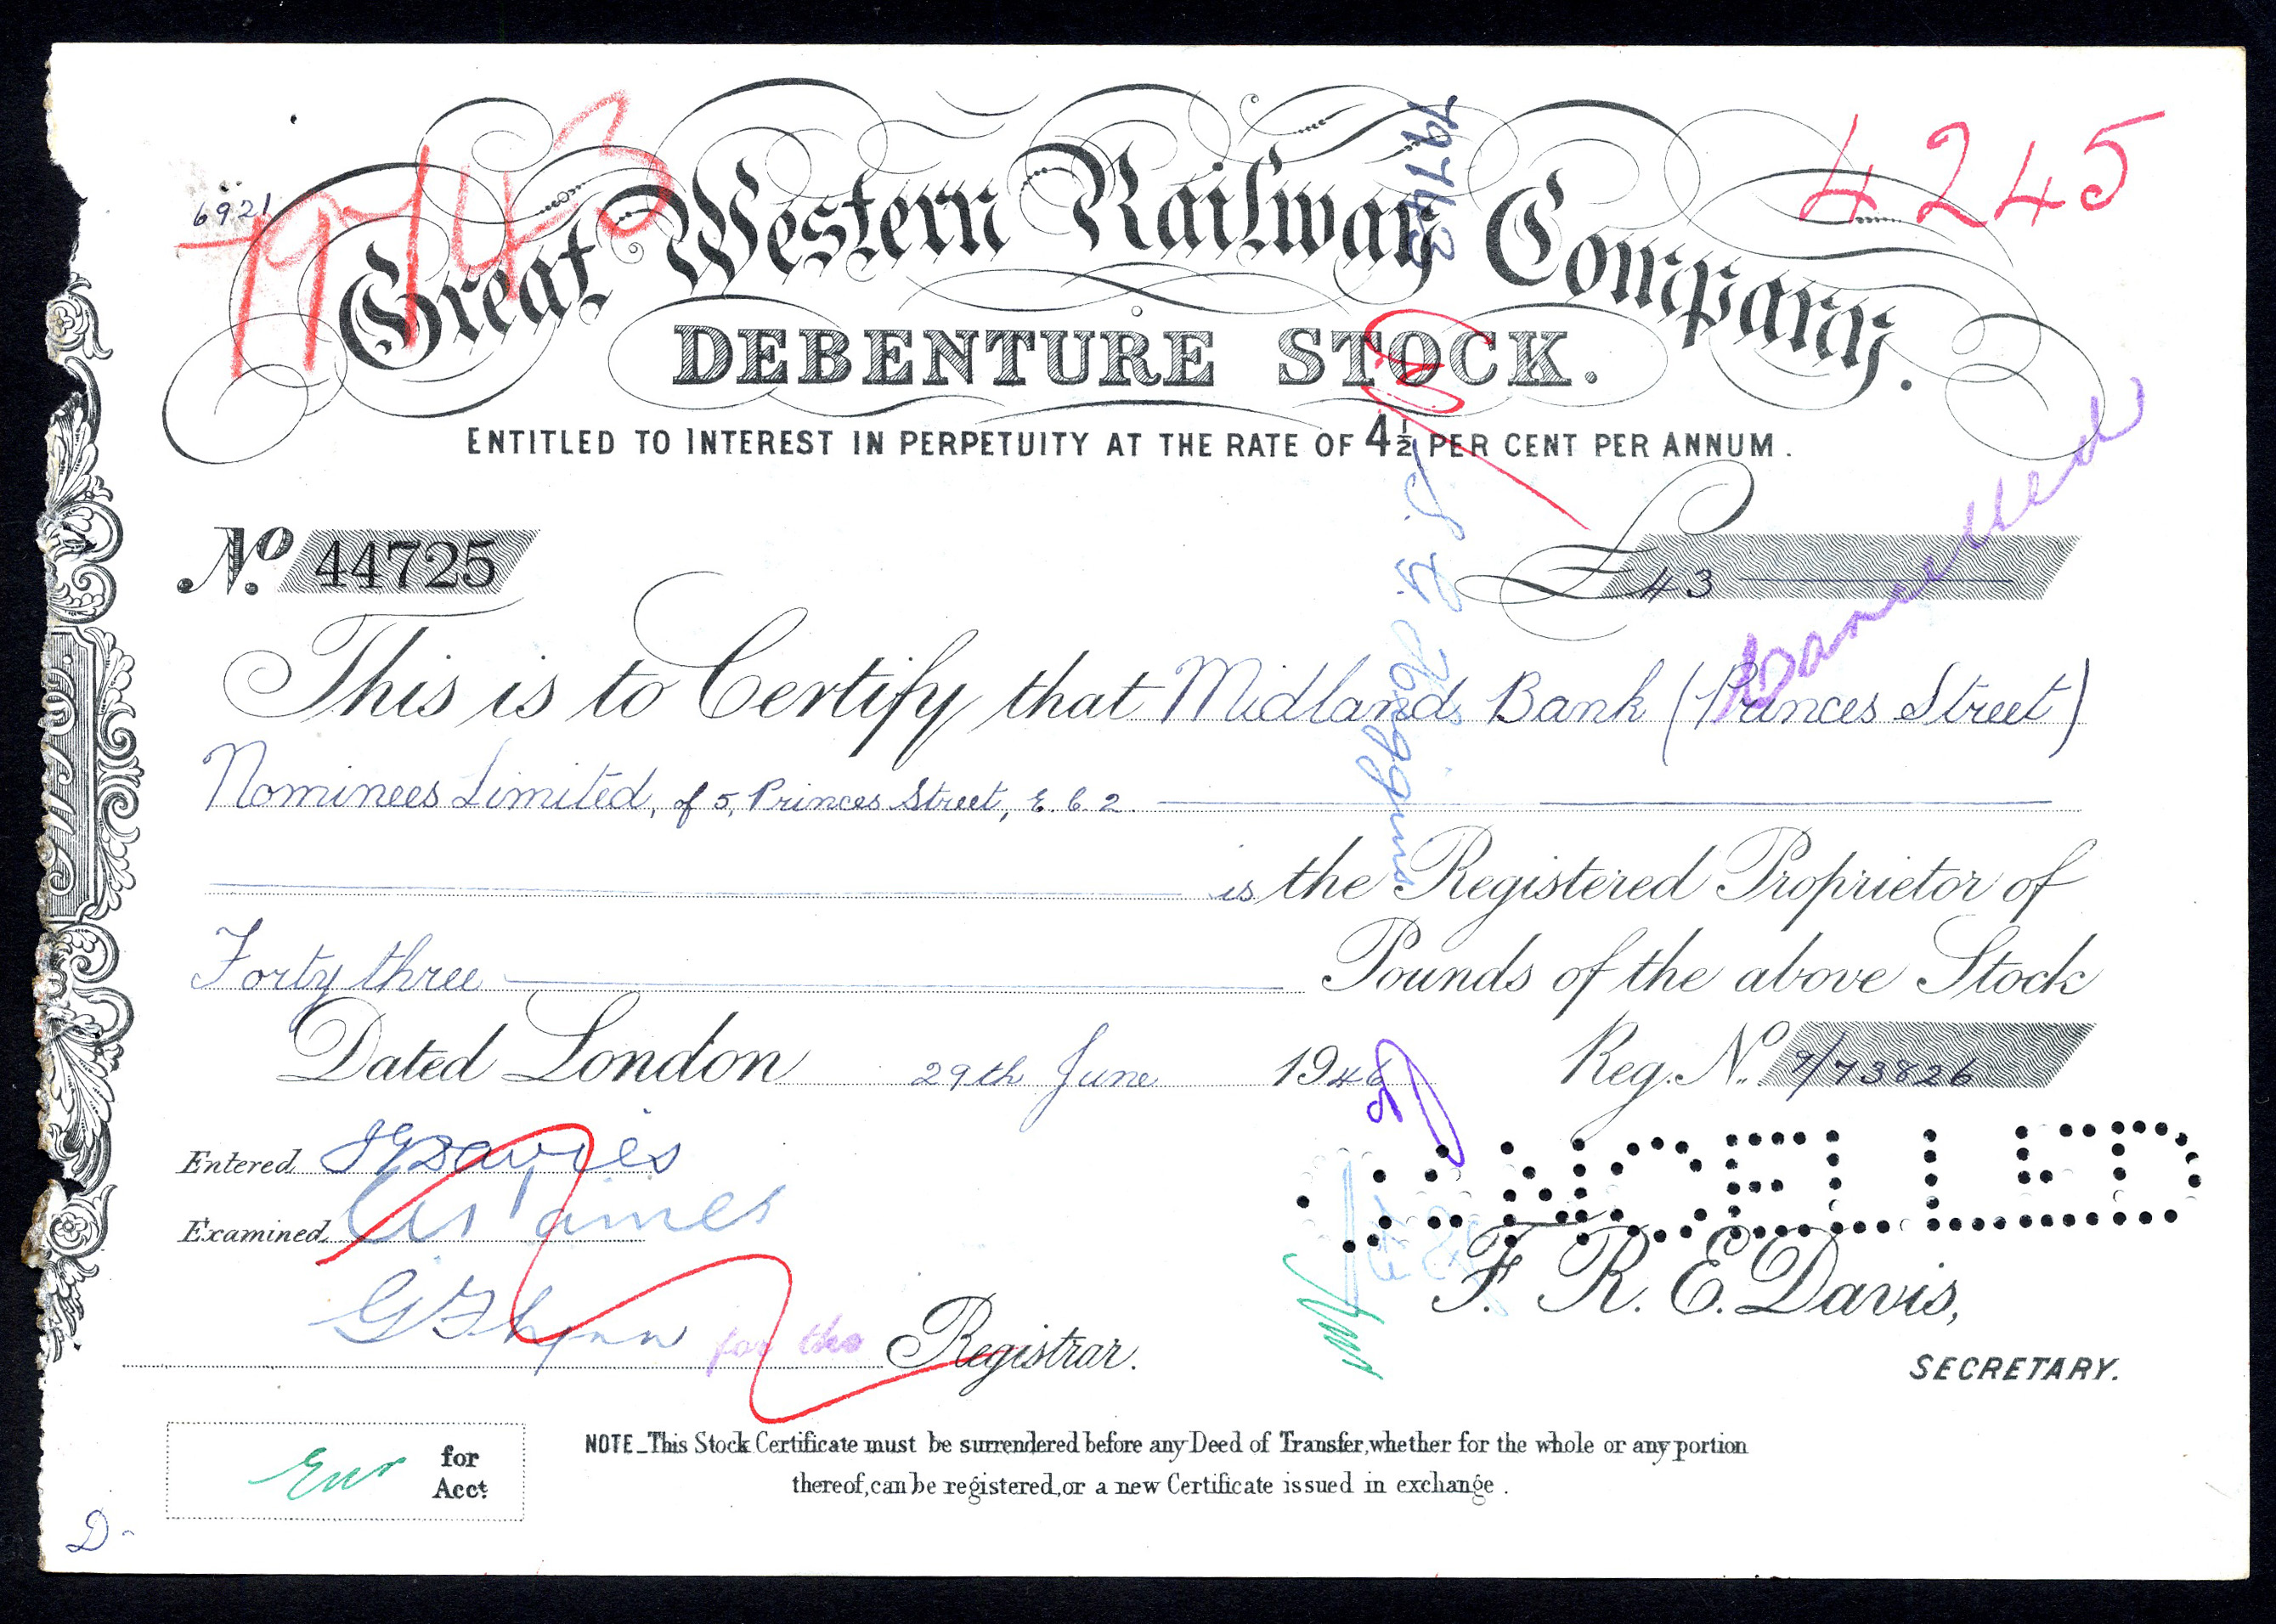 6921
79743
4245
79743
Great Western Railway Company.
DEBENTURE STOCK.
ENTITLED TO INTEREST IN PERPETUITY AT THE RATE OF 4½ PER CENT PER ANNUM.
Cancelled
No. 44725
£ 43
This is to Certify that Midland Bank (Princes Street)
Nominees Limited, of 5, Princes Street, E.C.2.
is the Registered Proprietor of
Forty three Pounds of the above Stock
Dated London 29th June 1946 Reg. No. 9/73826
Entered Davies
CANCELLED
Examined
F. R. E. Davis,
for the Registrar.
SECRETARY.
for
Acct.
NOTE_This Stock Certificate must be surrendered before any Deed of Transfer, whether for the whole or any portion
thereof, can be registered, or a new Certificate issued in exchange.
D-